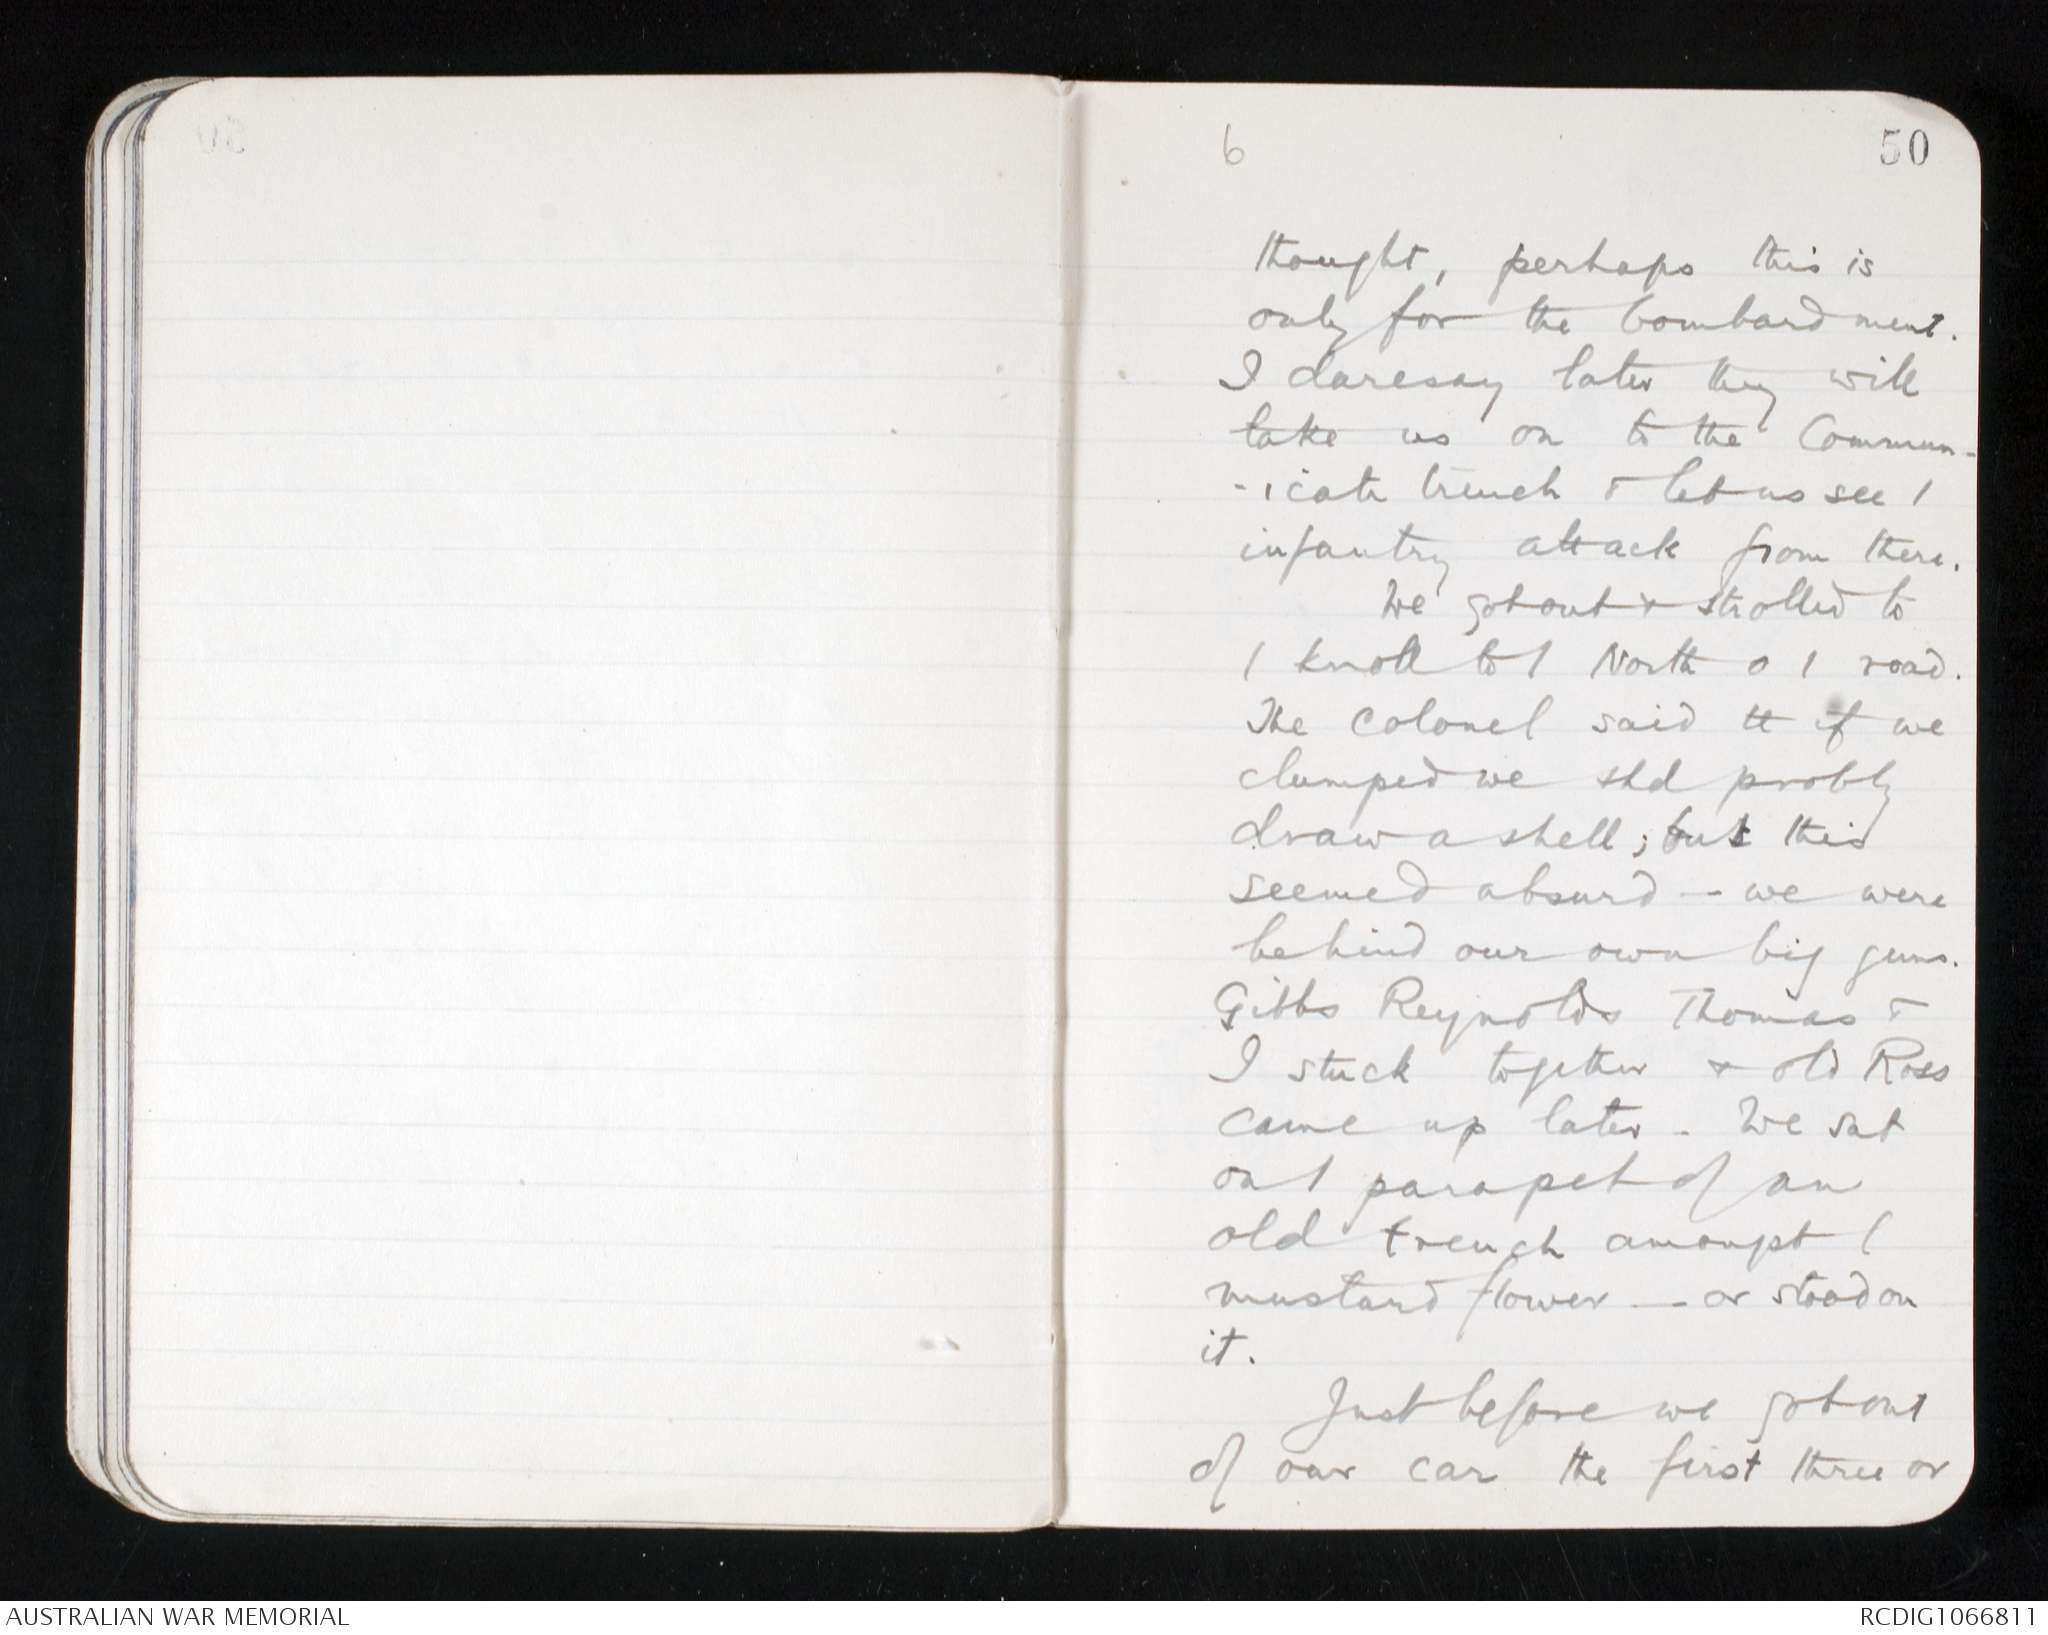 6
50
thought, perhaps this is
only for the bombardment.
I daresay later they will
take us on to the Commun-
-icatn trench & let us see /
infantry attack from there.
We got out & strolled to
/ knoll to / North o / road.
The Colonel said tt if we
clumped we shd probly
draw a shell; but this
seemed absurd - we were
behind our own big guns.
Gibbs Reynolds Thomas &
I stuck together & old Ross
came up later - We sat
on / parapet of an
old trench amongst /
mustard flower — or stood on
it.
Just before we got out
of our car the first three or
AUSTRALIAN WAR MEMORIAL
RCDIG1066811